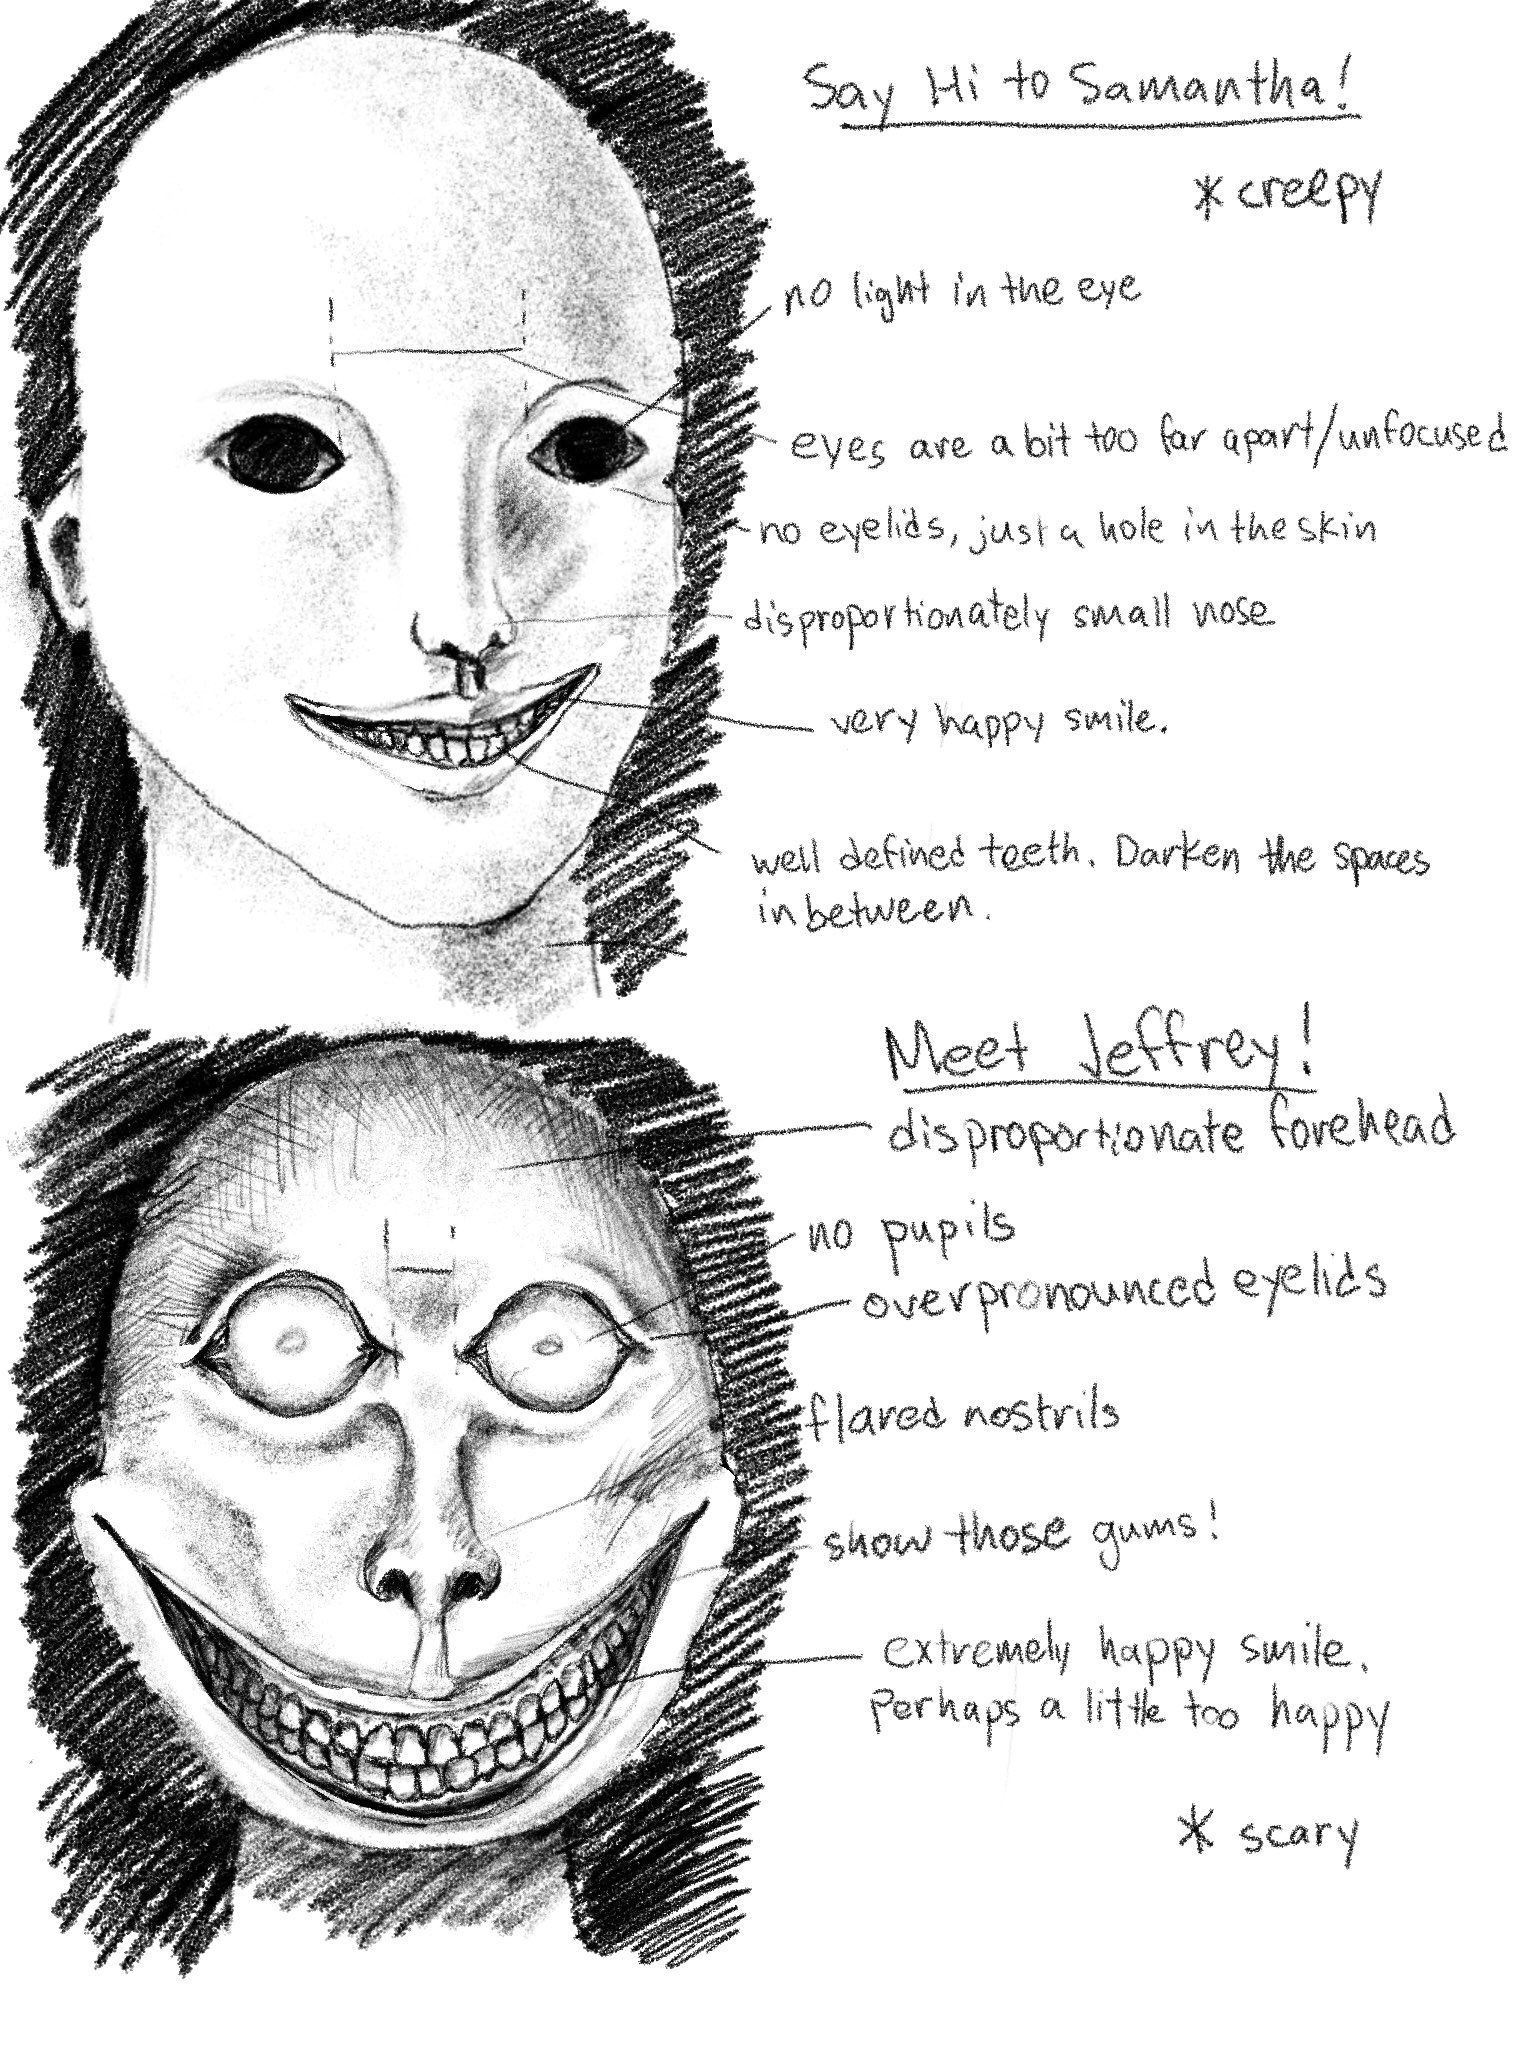 Say Hi to Samantha!
*creepy
no light in the eye
eyes are a bit too far apart/unfocused
no eyelids, just a hole in the skin
disproportionately small nose
very happy smile.
well defined teeth. Darken the spaces
in between.
Meet Jeffrey!
disproportionate forehead
no pupils
overpronounced eyelids
flared nostrils
show those gums!
extremely happy smile.
Perhaps a little too happy
* scary